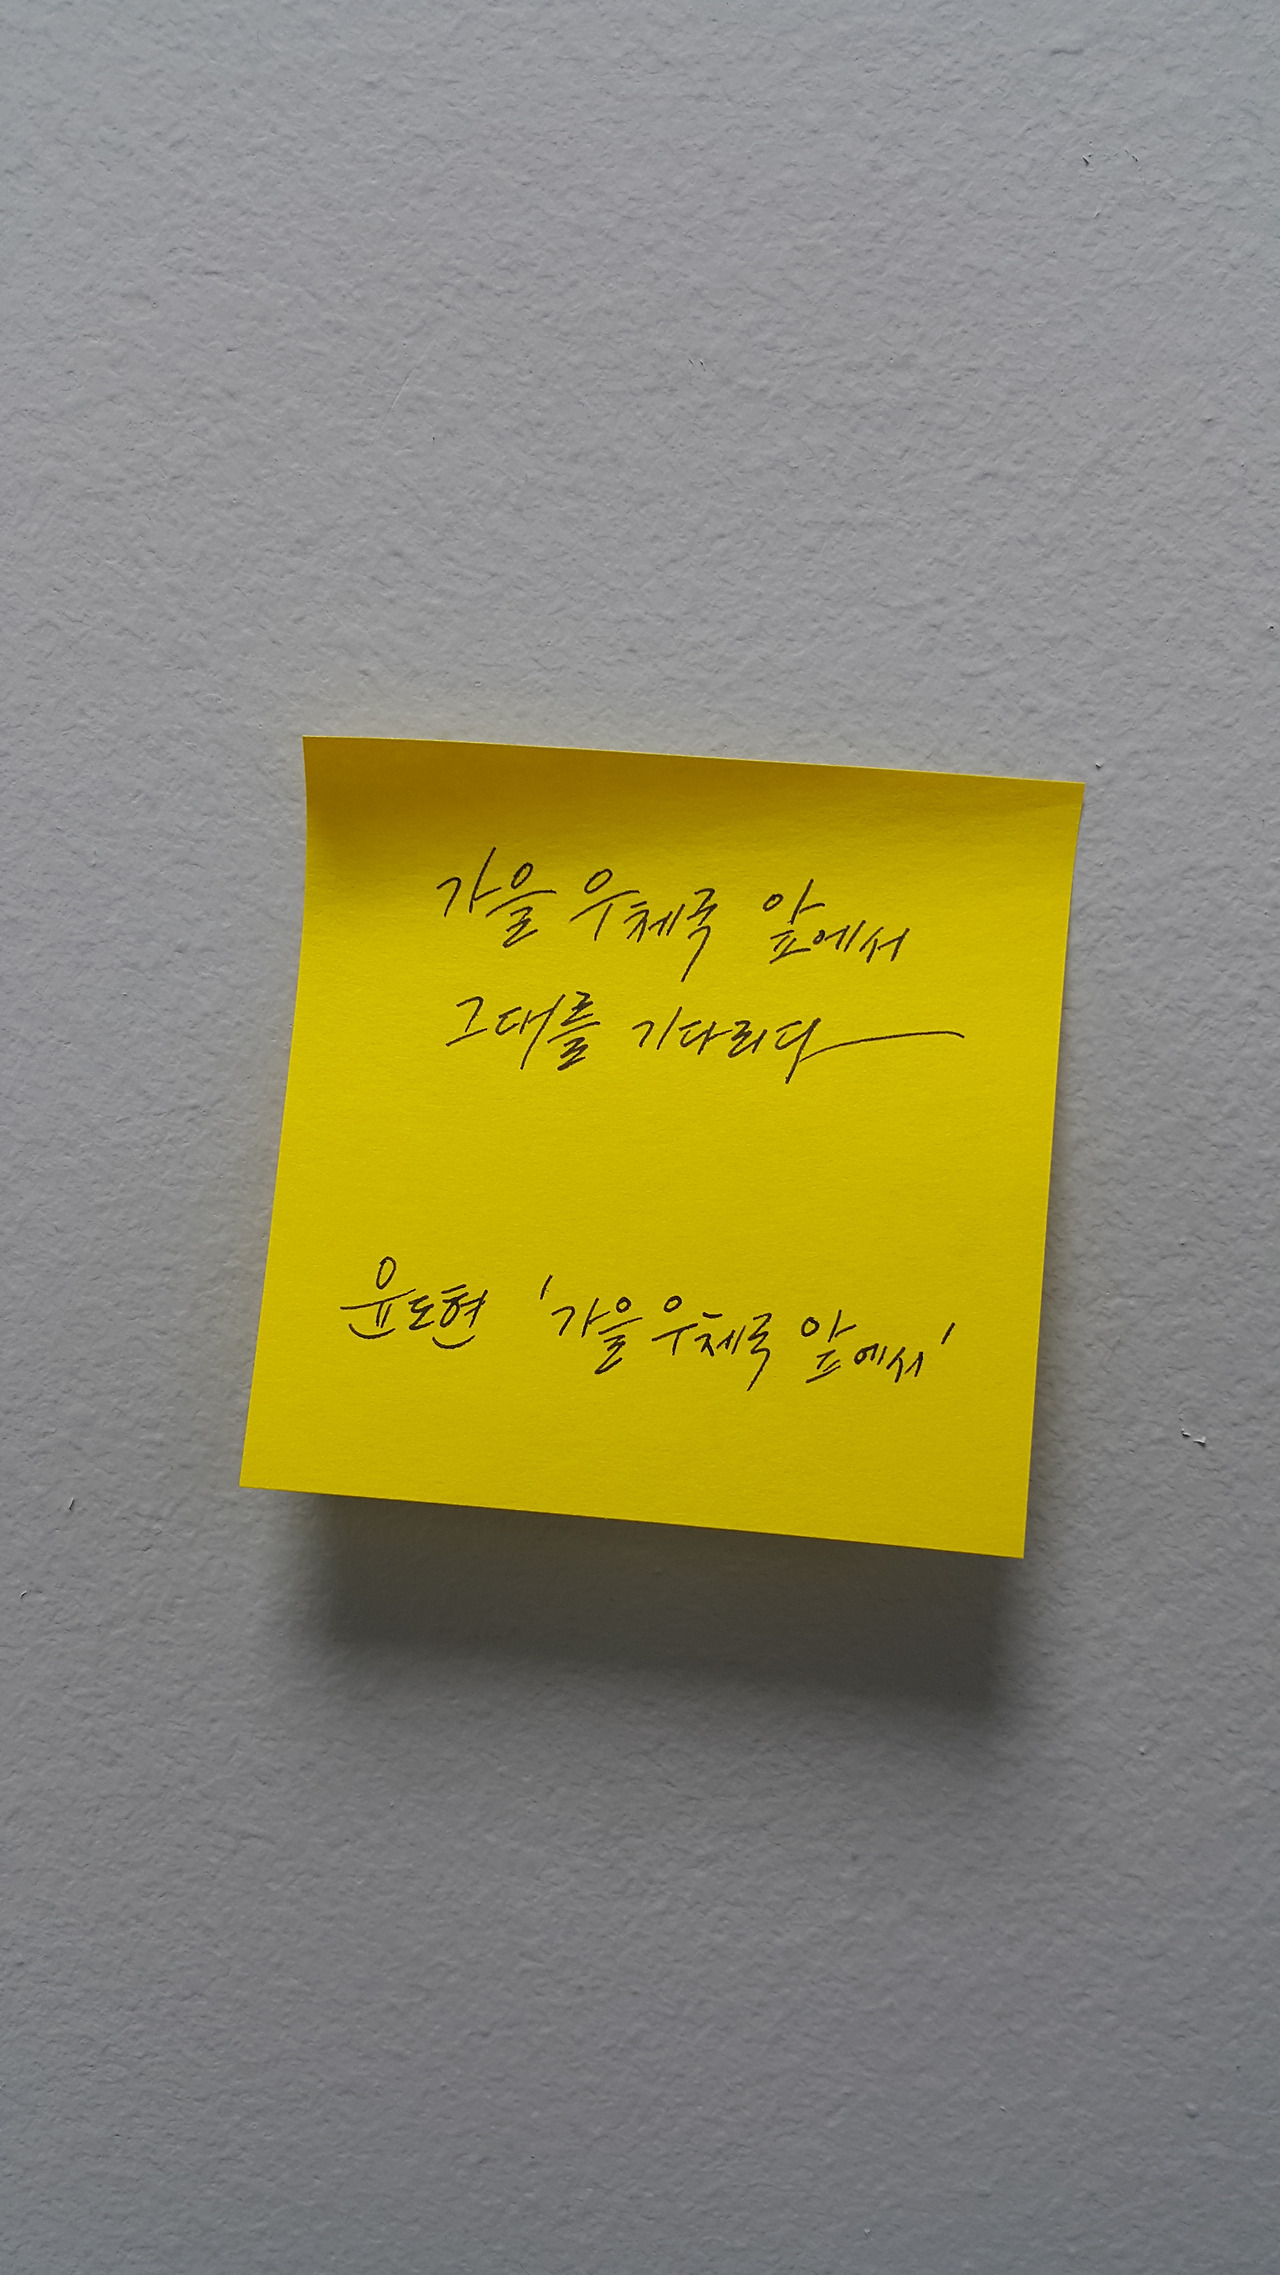 가을 우체국 앞에서
그대를 기다리다
윤도현 '가을 우체국 앞에서'